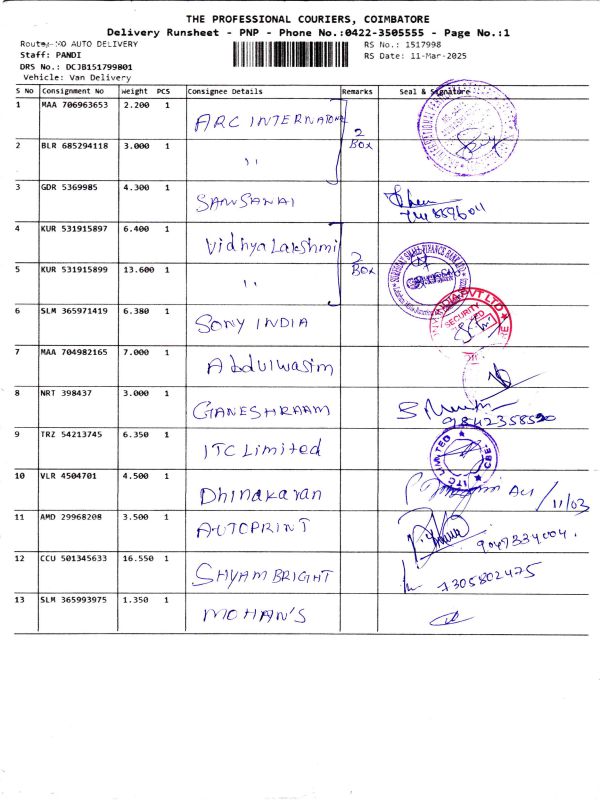 THE PROFESSIONAL COURIERS, COIMBATORE
Delivery Runsheet - PNP - Phone No.:0422-3505555 - Page No.:1
Route:-NO AUTO DELIVERY
RS No.: 1517998
Staff: PANDI
RS Date: 11-Mar-2025
DRS No.: DCJB151799801
Vehicle: Van Delivery
S No Consignment No Weight PCS Consignee Details Remarks Seal & Signature
1 MAA 706963653 2.200 1 ARC INTERNATIONAL
2 BLR 685294118 3.000 1 ,, 2 BOX
3 GDR 5369985 4.300 1 SANSANAI
4 KUR 531915897 6.400 1 Vidhya Lakshmi
5 KUR 531915899 13.600 1 ,, 2 BOX
6 SLM 365971419 6.380 1 SONY INDIA SECURITY
7 MAA 704982165 7.000 1 Abdulwasim
8 NRT 398437 3.000 1 GANESHRAAM 9842358520
9 TRZ 54213745 6.350 1 ITC Limited ITC LIMITED CBE
10 VLR 4504701 4.500 1 Dhinakaran 11/03
11 AMD 29968208 3.500 1 AUTOPRINT 9047334004.
12 CCU 501345633 16.550 1 SHYAM BRIGHT 7305802475
13 SLM 365993975 1.350 1 MOHAN'S